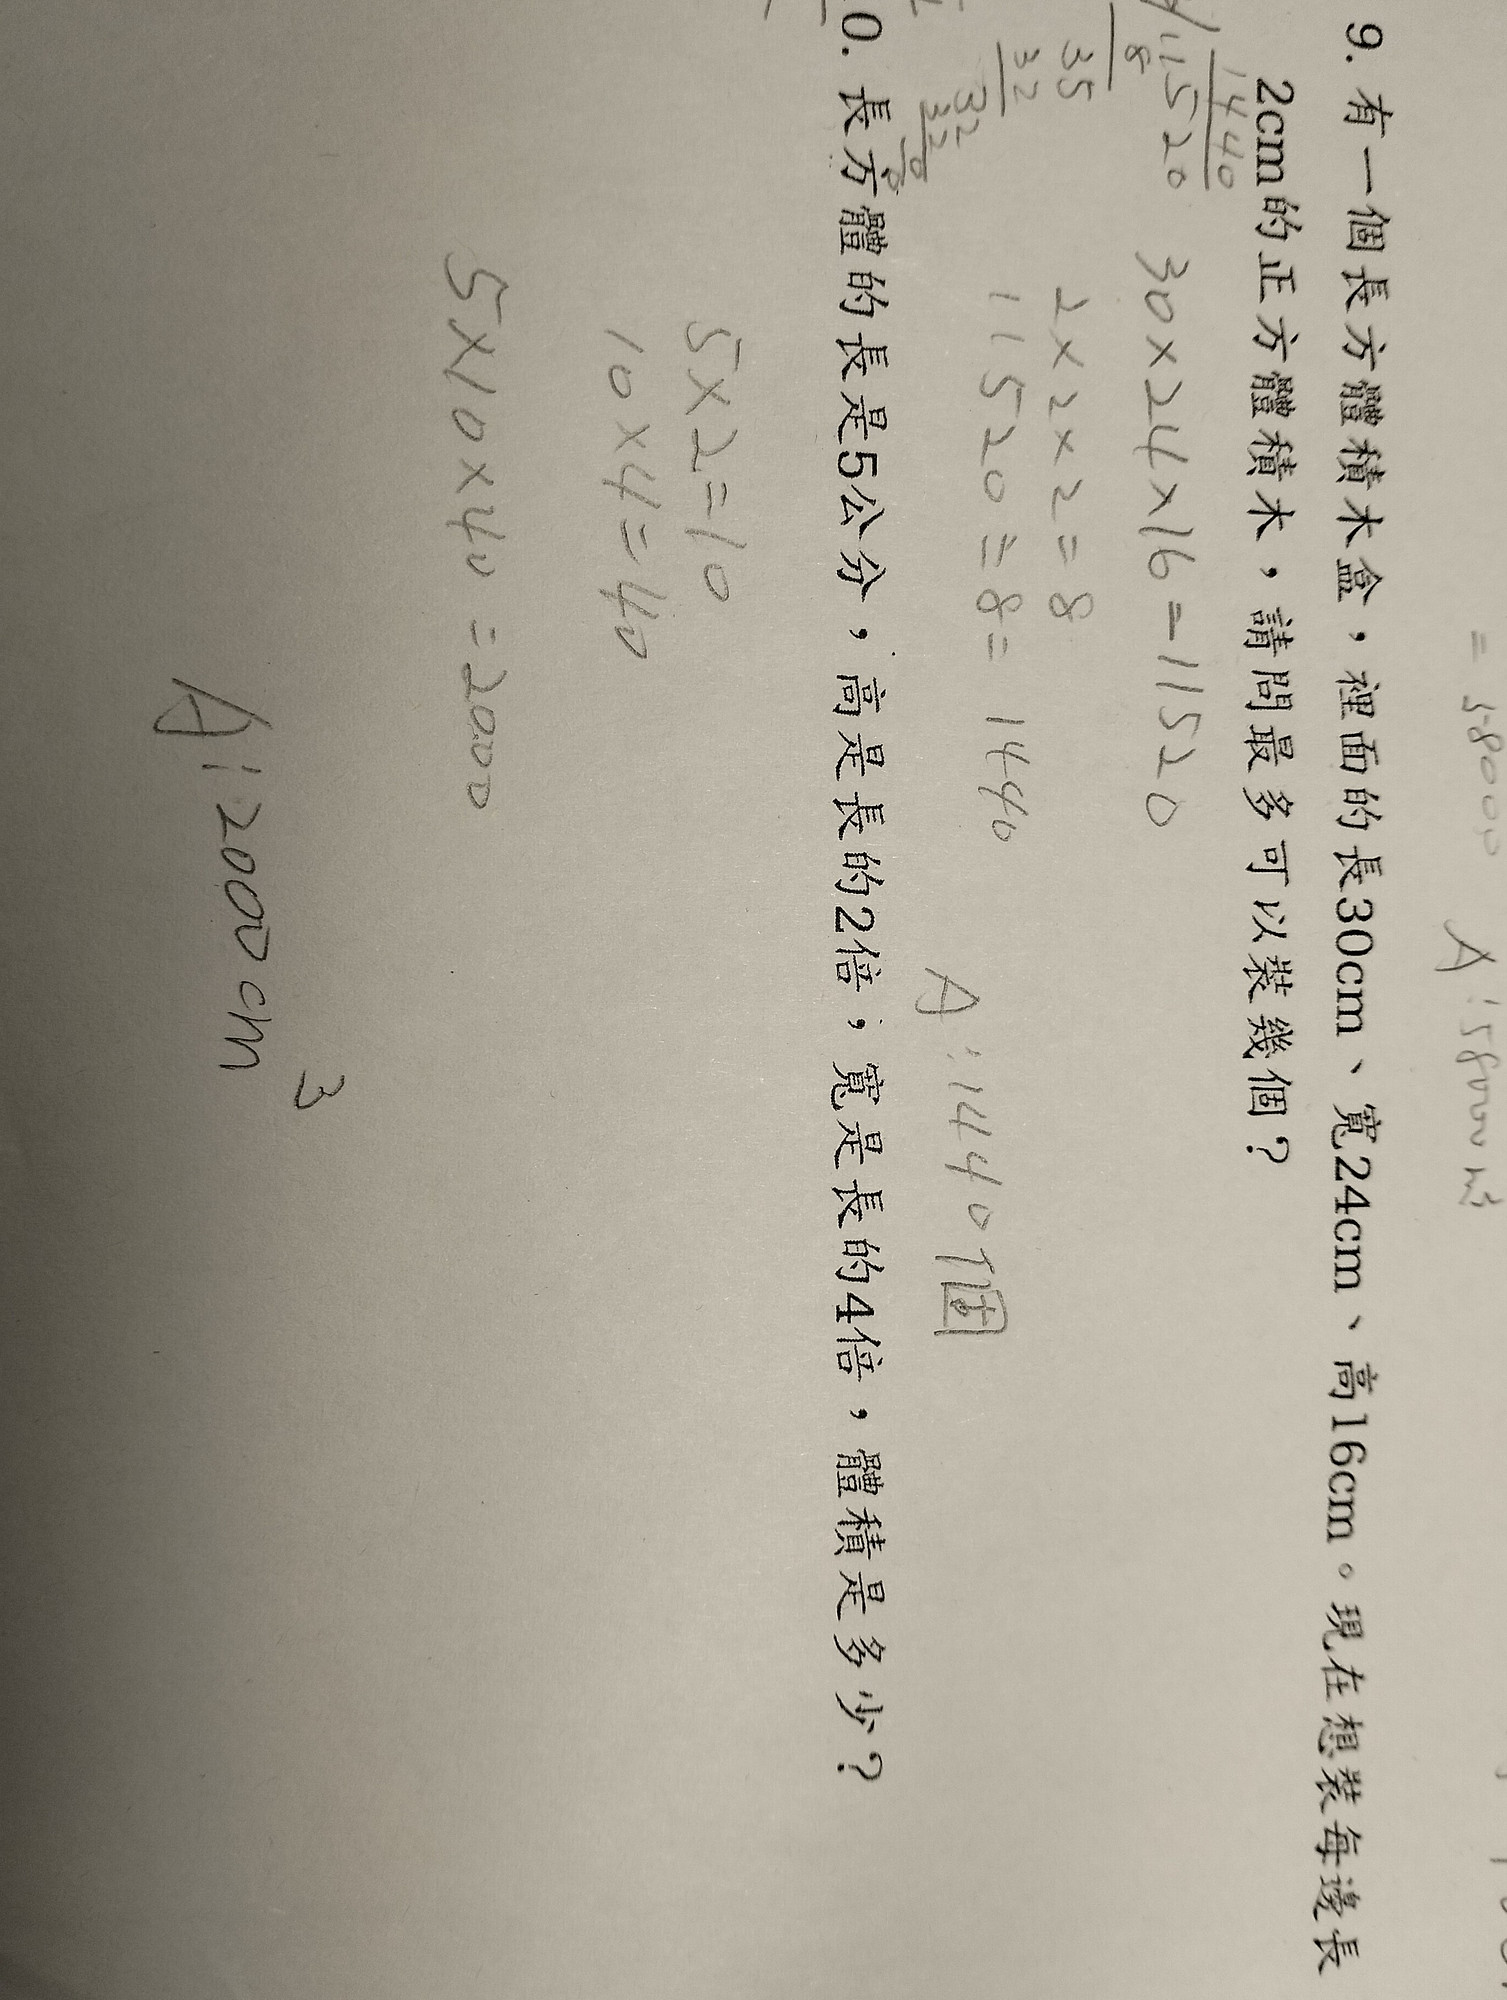 = 58000 A:58000m³
9. 有一個長方體積木盒，裡面的長30cm、寬24cm、高16cm。現在想裝每邊長
2cm的正方體積木，請問最多可以裝幾個？
1440
11520
8
35
32
32
32
0
30×24×16=11520
2×2×2=8
11520÷8=1440
A:1440個
0. 長方體的長是5公分，高是長的2倍；寬是長的4倍，體積是多少？
5×2=10
10×4=40
5×10×40=2000
A:2000cm³